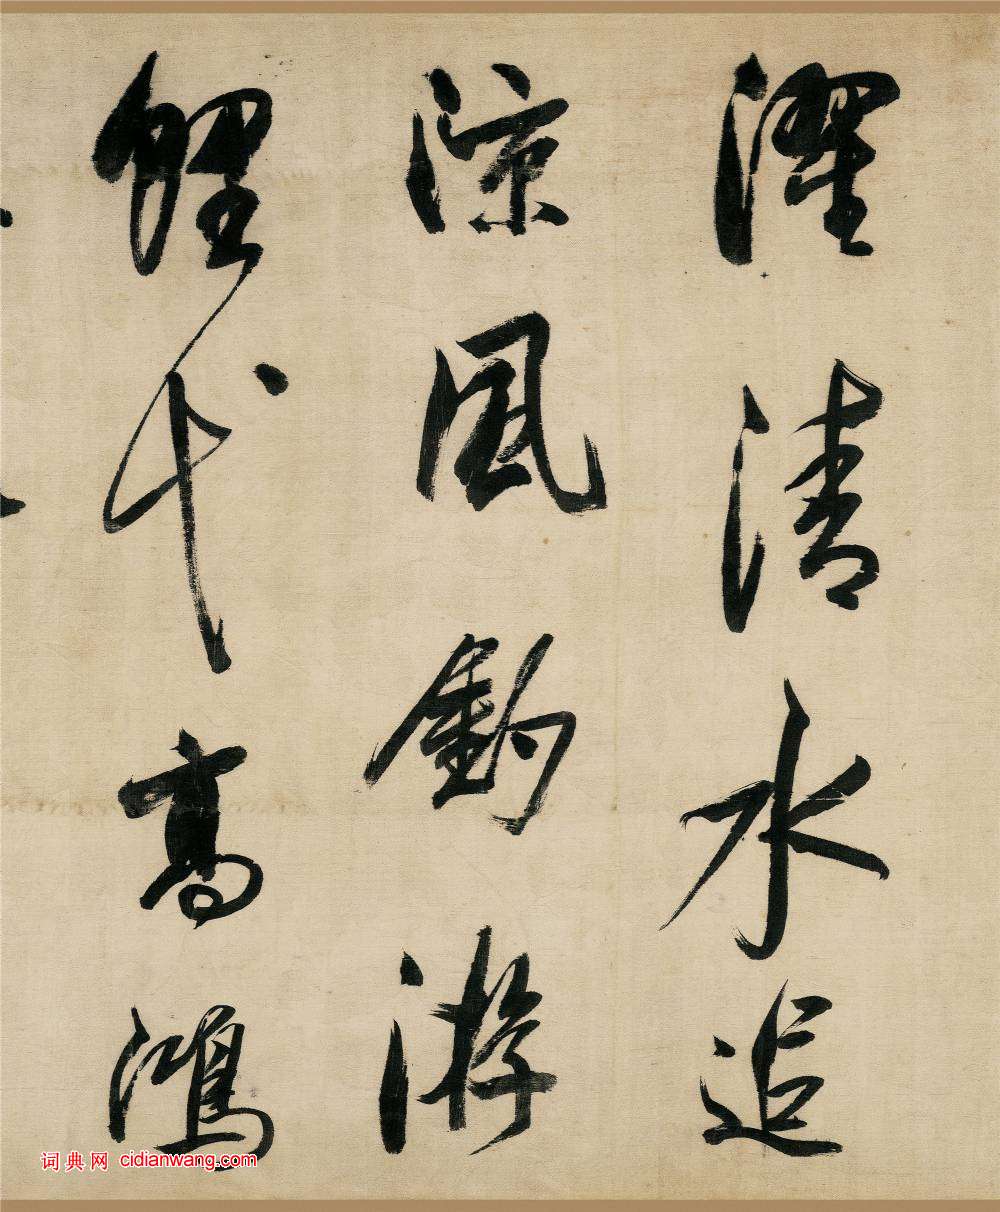 濯清水追
涼風釣游
鯉弋高鴻
词典网 cidianwang.com